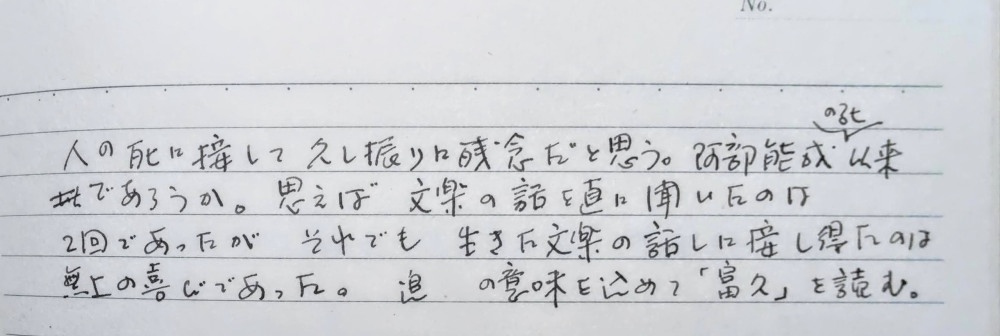 No.
の死
人の死に接して久し振りに残念だと思う。阿部能成以来
であろうか。思えば 文楽の話を直に聞いたのは
2回であったが それでも 生きた文楽の話しに接し得たのは
無上の喜びであった。 追 の意味を込めて「富久」を読む。